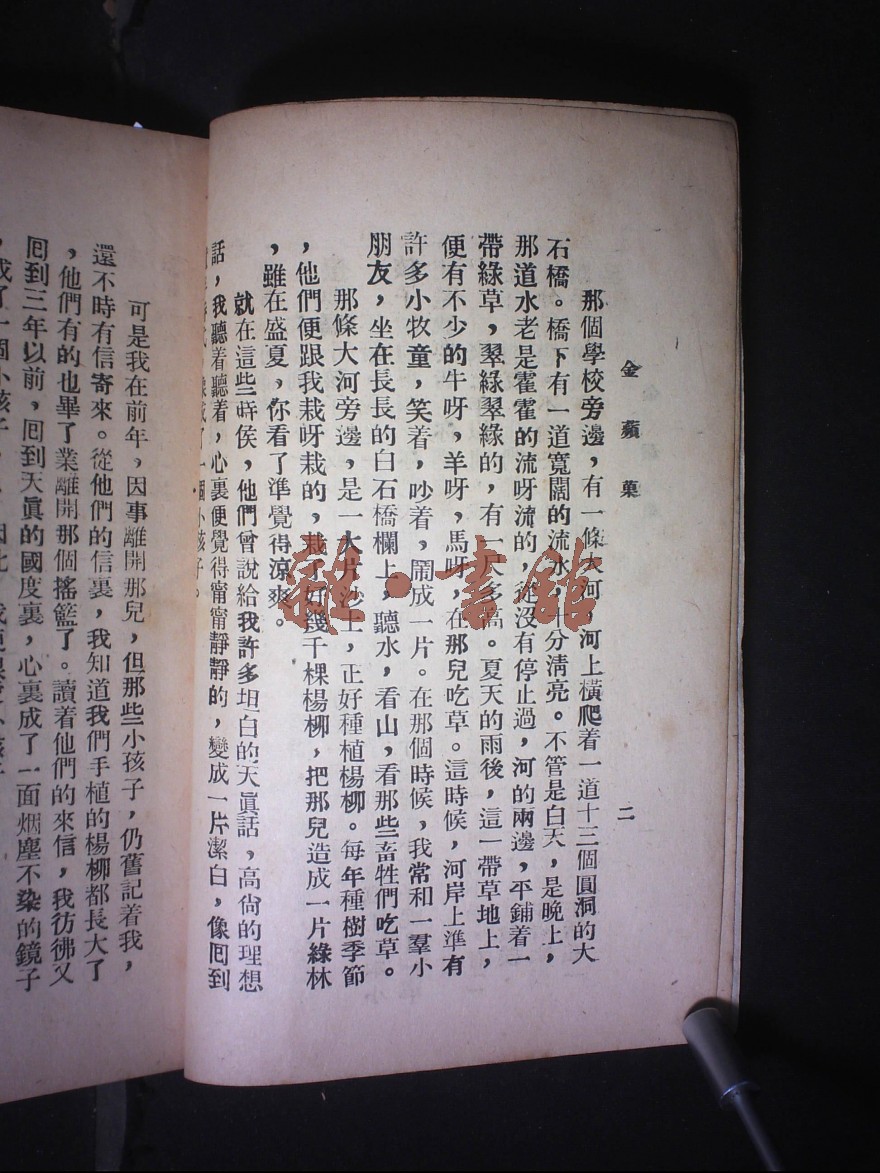 金蘋菓
二
那個學校旁邊，有一條大河，河上橫爬着一道十三個圓洞的大
石橋。橋下有一道寬闊的流水，十分清亮。不管是白天，是晚上，
那道水老是霍霍的流呀流的，從沒有停止過，河的兩邊，平鋪着一
帶綠草，翠綠翠綠的，有一尺多高。夏天的雨後，這一帶草地上，
便有不少的牛呀，羊呀，馬呀，在那兒吃草。這時候，河岸上準有
許多小牧童，笑着，吵着，鬧成一片。在那個時候，我常和一羣小
朋友，坐在長長的白石橋欄上，聽水，看山，看那些畜牲們吃草。
那條大河旁邊，是一大片沙土，正好種植楊柳。每年種樹季節
，他們便跟我栽呀栽的，栽了好幾千棵楊柳，把那兒造成一片綠林
，雖在盛夏，你看了準覺得涼爽。
就在這些時侯，他們曾說給我許多坦白的天眞話，高尙的理想
話，我聽着聽着，心裏便覺得甯甯靜靜的，變成一片潔白，像囘到
成了一個小孩子。
可是我在前年，因事離開那兒，但那些小孩子，仍舊記着我，
還不時有信寄來。從他們的信裏，我知道我們手植的楊柳都長大了
，他們有的也畢了業離開那個搖籃了。讀着他們的來信，我彷彿又
囘到三年以前，囘到天眞的國度裏，心裏成了一面烟塵不染的鏡子
，成了一個小孩子
雜·書館